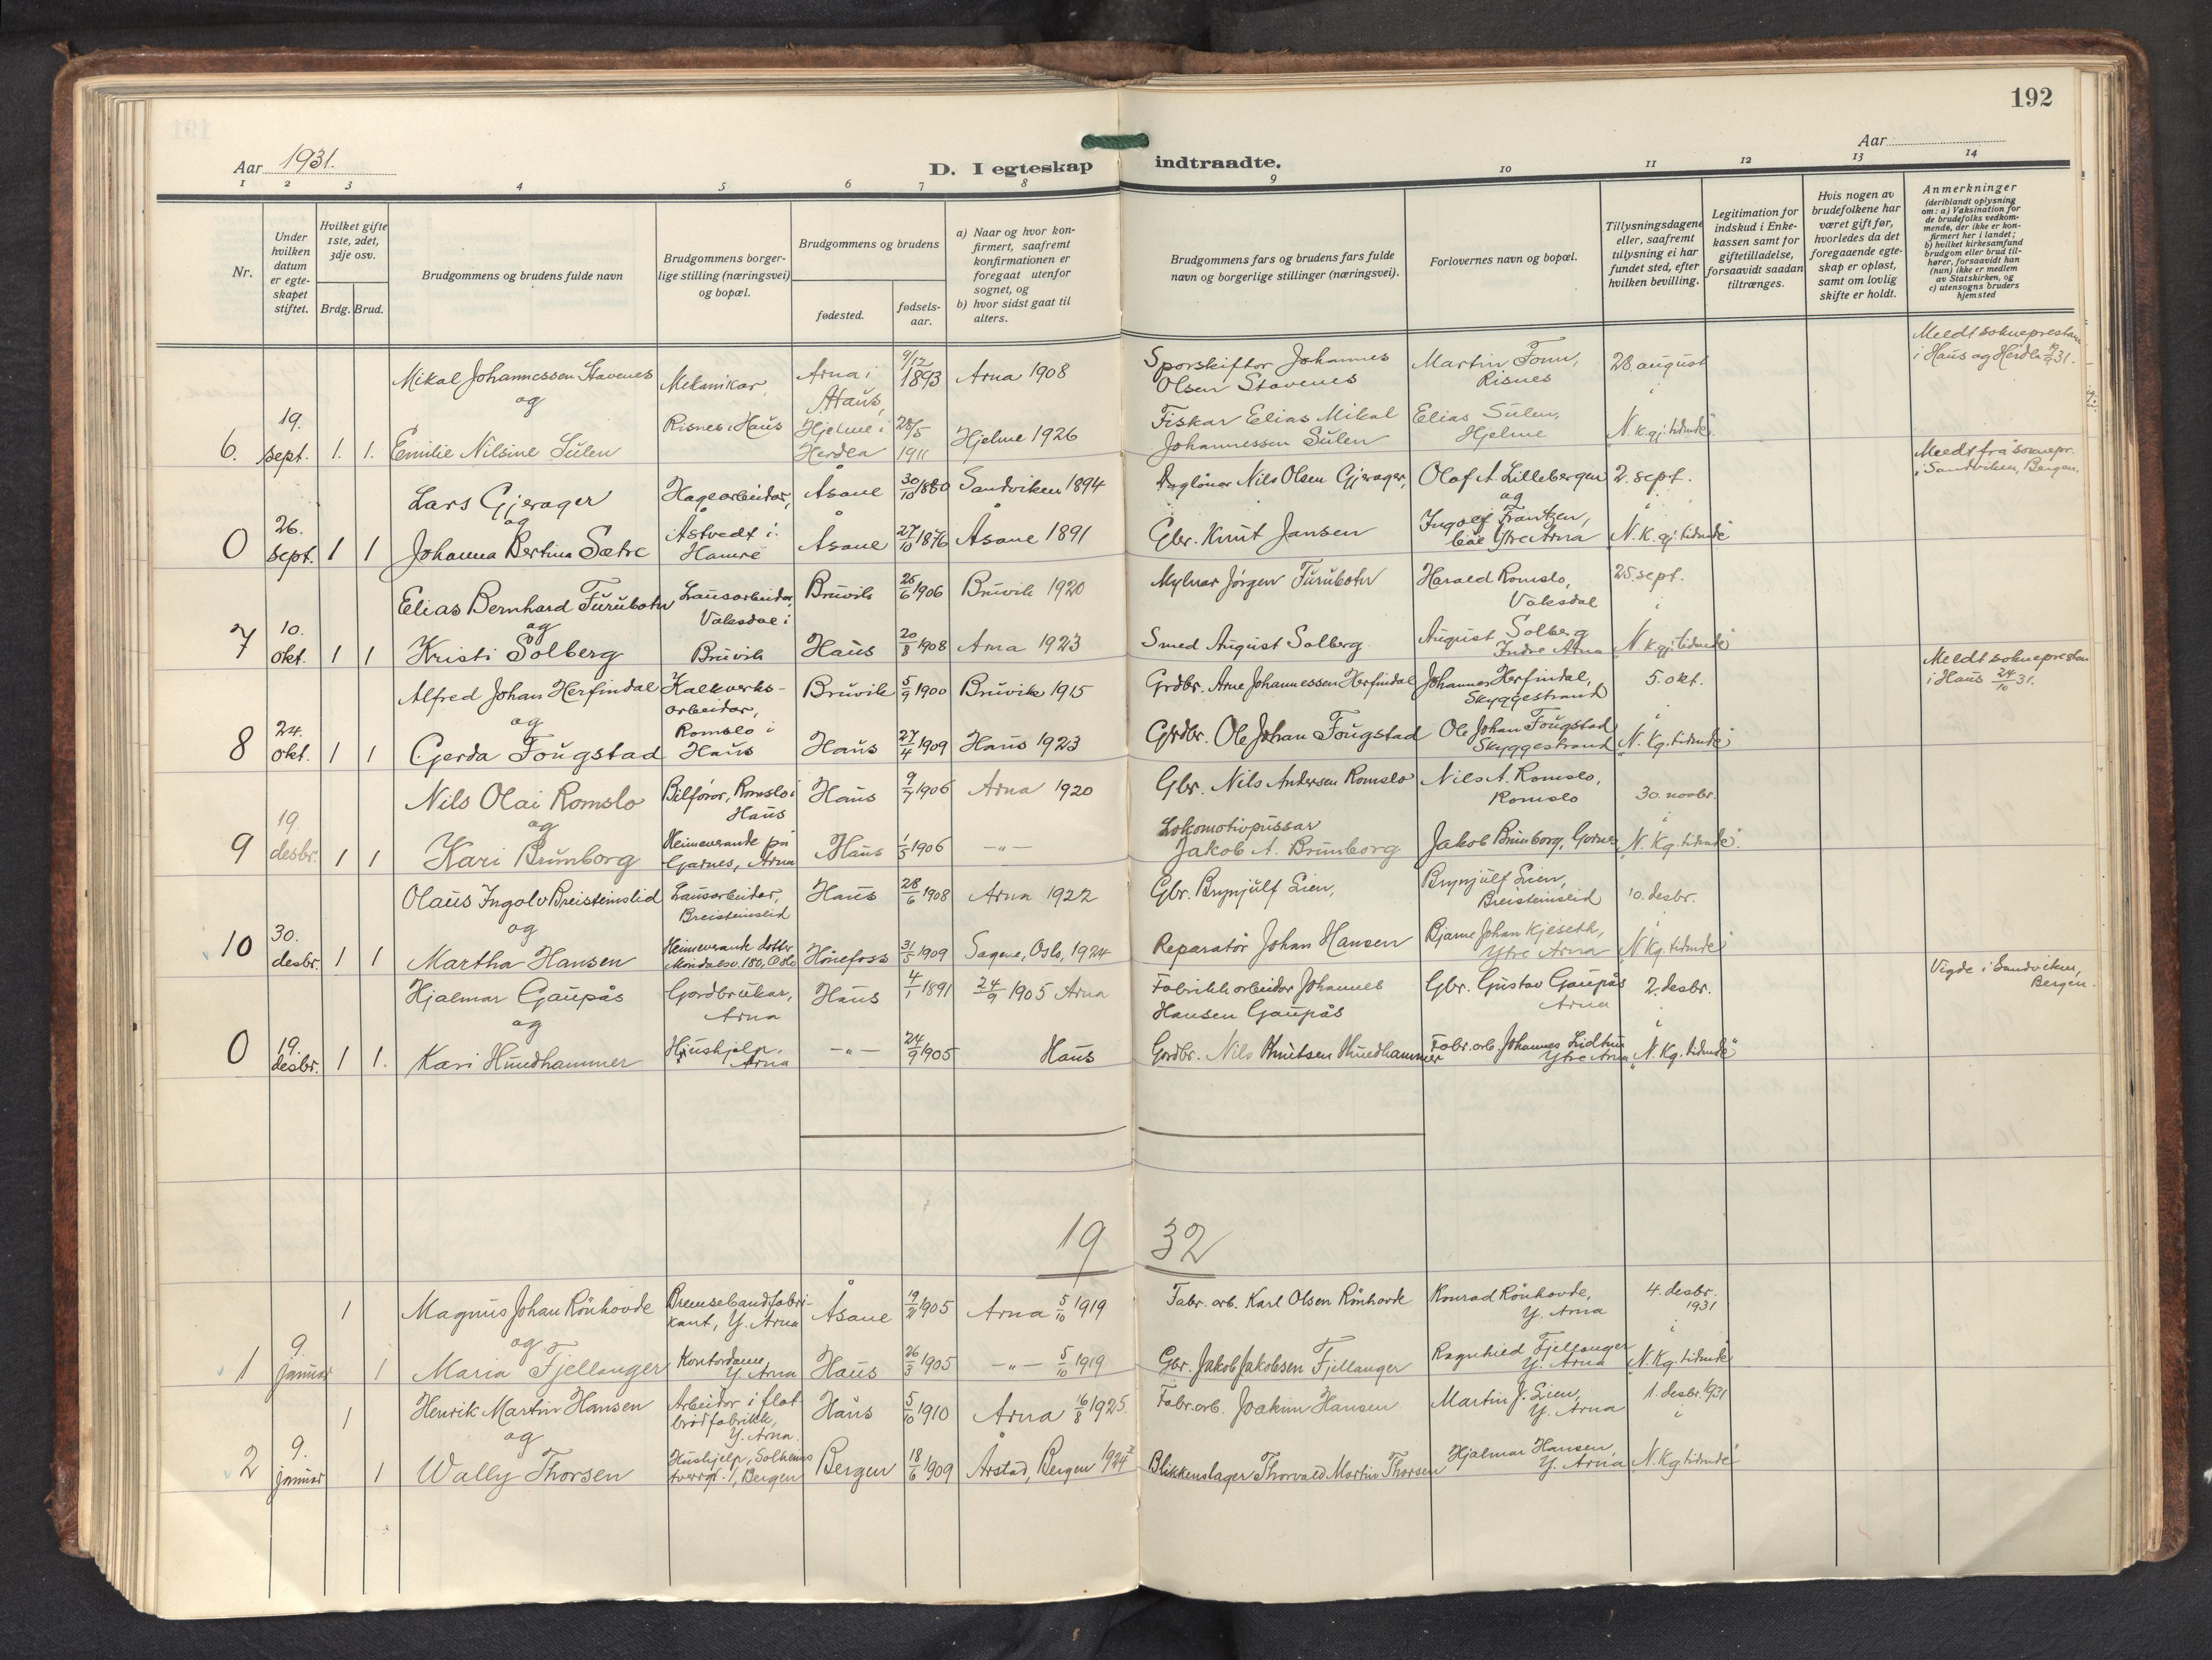 192
Aar 1931.
D. I egteskap indtraadte.
Aar
1 2 3 4 5 6 7 8 9 10 11 12 13 14
Nr.
Under hvilken datum er egteskapet stiftet.
Hvilket gifte 1ste, 2det, 3dje osv.
Brdg. Brud.
Brudgommens og brudens fulde navn
Brudgommens borgerlige stilling (næringsvei) og bopæl.
Brudgommens og brudens
fødested.
fødselsaar.
a) Naar og hvor konfirmert, saafremt konfirmationen er foregaat utenfor sognet, og
b) hvor sidst gaat til alters.
Brudgommens fars og brudens fars fulde navn og borgerlige stillinger (næringsvei).
Forlovernes navn og bopæl.
Tillysningsdagene eller, saafremt tillysning ei har fundet sted, efter hvilken bevilling.
Legitimation for indskud i Enkekassen samt for giftetilladelse, forsaavidt saadan tiltrænges.
Hvis nogen av brudefolkene har været gift før, hvorledes da det foregaaende egteskap er opløst, samt om lovlig skifte er holdt.
Anmerkninger (deriblandt oplysning om: a) Vaksination for de brudefolks vedkommende, der ikke er konfirmert her i landet; b) hvilket kirkesamfund brudgom eller brud tilhører, forsaavidt han (hun) ikke er medlem av Statskirken, og c) utensogns bruders hjemsted
Mikal Johannessen Stavenes Mekanikar, Arna i Haus, 9/12 1893 Arna 1908 Sporskiftar Johannes Olsen Stavenes Martin Tonn, Risnes 28. august Meldt sokneprestane i Haus og Herdla 19/9 31.
og
6. 19. sept. 1. 1. Emilie Nilsine Sulen Risnes i Haus Hjelme i Herdla 28/5 1911 Hjelme 1926 Fiskar Elias Mikal Johannessen Sulen Elias Sulen, Hjelme i "N. k.gj. tidende"
Lars Gjerager Hagearbeidar, Åsane 30/10 1880 Sandviken 1894 Daglønar Nils Olsen Gjerager, Olaf A. Lillebergen 2. sept. Meldt frå soknepr. i Sandviken, Bergen.
og
0 26. sept. 1 1 Johanna Bertina Sætre Åstvedt i Hamre Åsane 27/10 1876 Åsane 1891 Gbr. Knut Jansen og Ingolf Frantzen, båe Ytre Arna i "N. K. gj. tidende"
Elias Bernhard Furubotn Lausarbeidar, Vaksdal i Bruvik 25/6 1906 Bruvik 1920 Mylnar Jørgen Furubotn Harald Romslo, Vaksdal 25. sept.
og
7 10. okt. 1 1 Kristi Solberg Bruvik Haus 20/8 1908 Arna 1923 Smed August Solberg August Solberg Indre Arna i "N. Kgj. tidende"
Alfred Johan Herfindal Kalkverksarbeidar, Bruvik 5/9 1900 Bruvik 1915 Grdbr. Arne Johannessen Herfindal Johannes Herfindal, Skyggestrand 5. okt. Meldt soknepresten i Haus 24/10 31.
og
8 24. okt. 1 1 Gerda Fougstad Romslo i Haus Haus 27/4 1909 Haus 1923 Grdbr. Ole Johan Fougstad Ole Johan Fougstad Skyggestrand i "N. Kg. tidende"
Nils Olai Romslo Bilførar, Romslo i Haus Haus 9/7 1906 Arna 1920 Gbr. Nils Andersen Romslo Nils A. Romslo, Romslo 30. novbr.
og
9 19. desbr. 1 1 Kari Brunborg Heimeverande på Garnes, Arna Haus 1/5 1906 —"— Lokomotivpussar Jakob A. Brunborg Jakob Brunborg, Garnes i "N. Kg. tidende".
Olaus Ingolv Breisteinslid Lausarbeidar, Breisteinslid Haus 28/6 1908 Arna 1922 Gbr. Brynjulf Lien, Brynjulf Lien, Breisteinslid 10. desbr.
og
10 30. desbr. 1 1 Martha Hansen Heimeverande dotter Hönefoss 31/5 1909 Sagene, Oslo, 1924 Reparatør Johan Hansen Bjarne Johan Kjeseth, Ytre Arna i "N. Kg. tidende"
Hjalmar Gaupås Gardbrukar, Arna Haus 4/1 1891 24/9 1905 Arna Fabrikkarbeidar Johannes Hansen Gaupås Gbr. Gustav Gaupås Arna 2. desbr. Vigde i Sandviken, Bergen.
og
0 19. desbr. 1 1. Kari Hundhammer Hushjelp, Arna —"— 24/9 1905 Haus Grdbr. Nils Knutsen Hundhammer Fabr. arb. Johannes Lidtun Ytre Arna i "N. Kg. tidende"
19 32
1 Magnus Johan Rönhovde Bremsebandfabrikant, Y. Arna Åsane 1905 Arna 5/10 1919 Fabr. arb. Karl Olsen Rönhovde Konrad Rönhovde, Y. Arna 4. desbr. 1931
og
1 9. januar 1 Maria Fjellanger Kontordame, Y. Arna Haus 26/3 1905 —"— 5/10 1919 Gbr. Jakob Jakobsen Fjellanger Ragnhild Fjellanger Y. Arna i "N. Kg. tidende"
1 Henrik Martin Hansen Arbeidar i flatbrödfabrikk, Y. Arna. Haus 5/10 1910 Arna 16/8 1925. Fabr. arb. Joakim Hansen Martin J. Lien, Y. Arna 1. desbr. 1931
og
2 9. januar 1 Wally Thorsen Hushjelp, Solheims tverrgt. 1, Bergen Bergen 18/6 1909 Årstad, Bergen 1924 Blikkenslager Thorvald Martin Thorsen Hjalmar Hansen, Y. Arna i "N. Kg tidende"